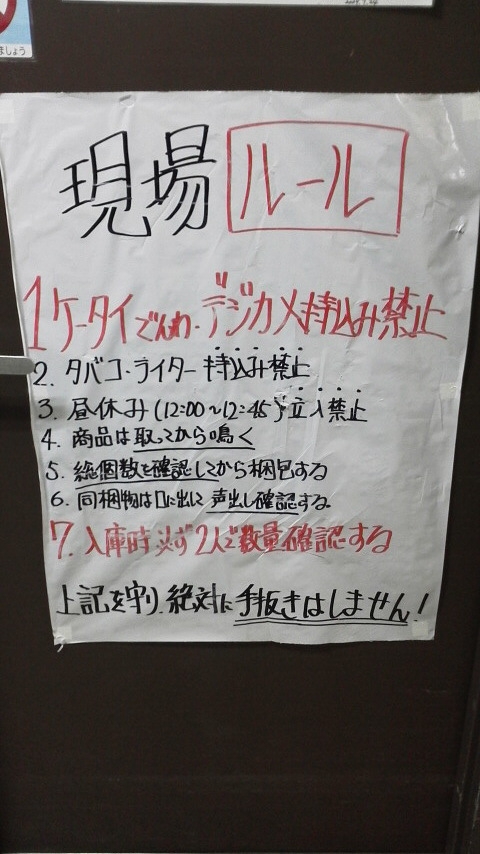 ましょう
現場ルール
1 ケータイでんわ・デジカメ持込み禁止
2. タバコ・ライター 持込み禁止
3. 昼休み(12:00~12:45)立入禁止
4. 商品は取ってから鳴く
5. 総個数を確認してから梱包する
6. 同梱物は口に出して 声出し確認する。
7. 入庫時 必ず2人で数量確認する
上記を守り、絶対に手抜きはしません!